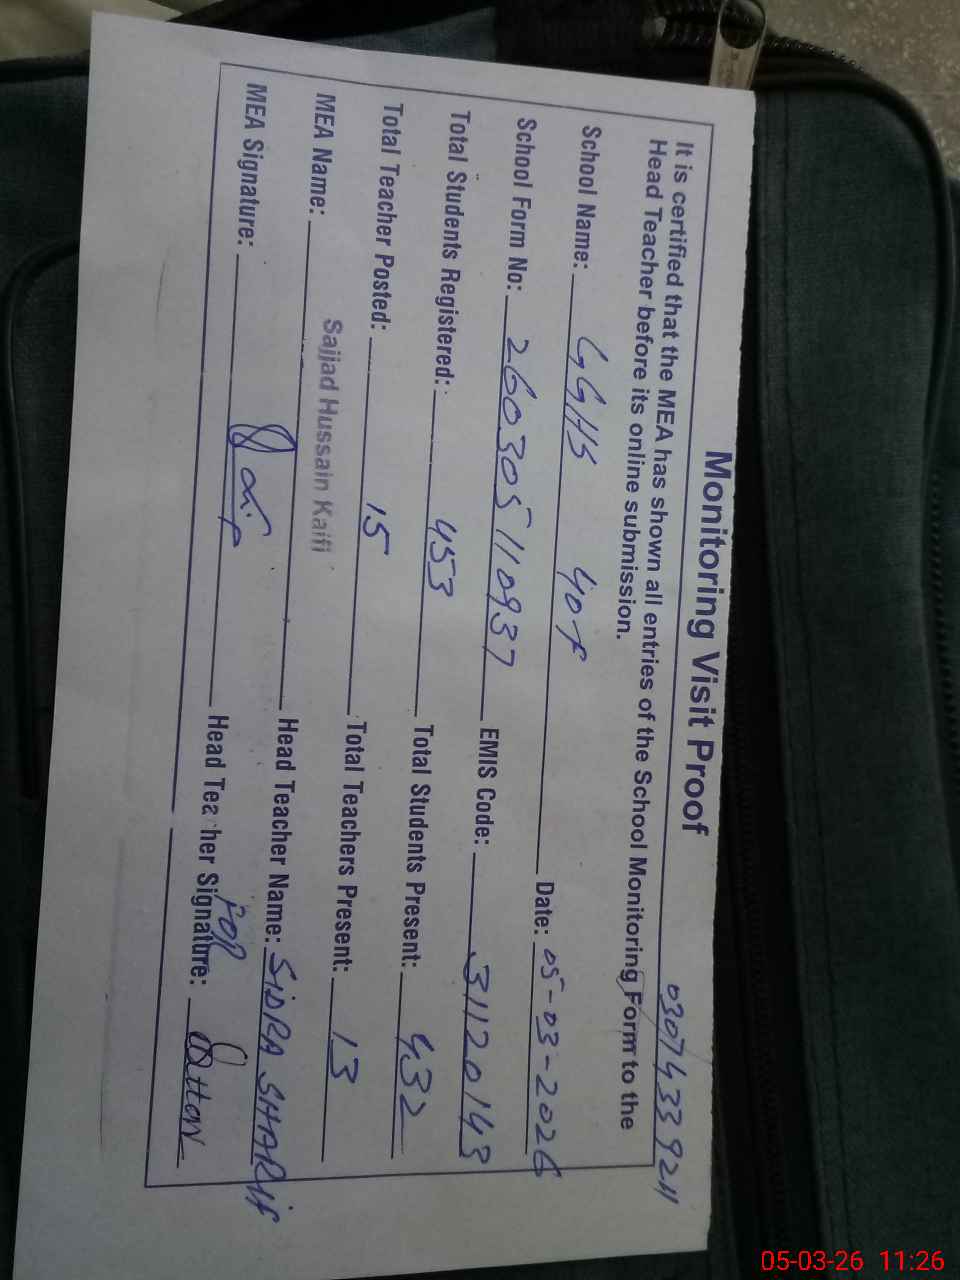 Monitoring Visit Proof
03074339211
It is certified that the MEA has shown all entries of the School Monitoring Form to the
Head Teacher before its online submission.
School Name: GGHS 40F Date: 05-03-2026
School Form No: 260305110937 EMIS Code: 31120143
Total Students Registered: 453 Total Students Present: 432
Total Teacher Posted: 15 Total Teachers Present: 13
MEA Name: Sajjad Hussain Kaifi Head Teacher Name: SIDRA SHARIF
MEA Signature: Head Teacher Signature: for
05-03-26 11:26